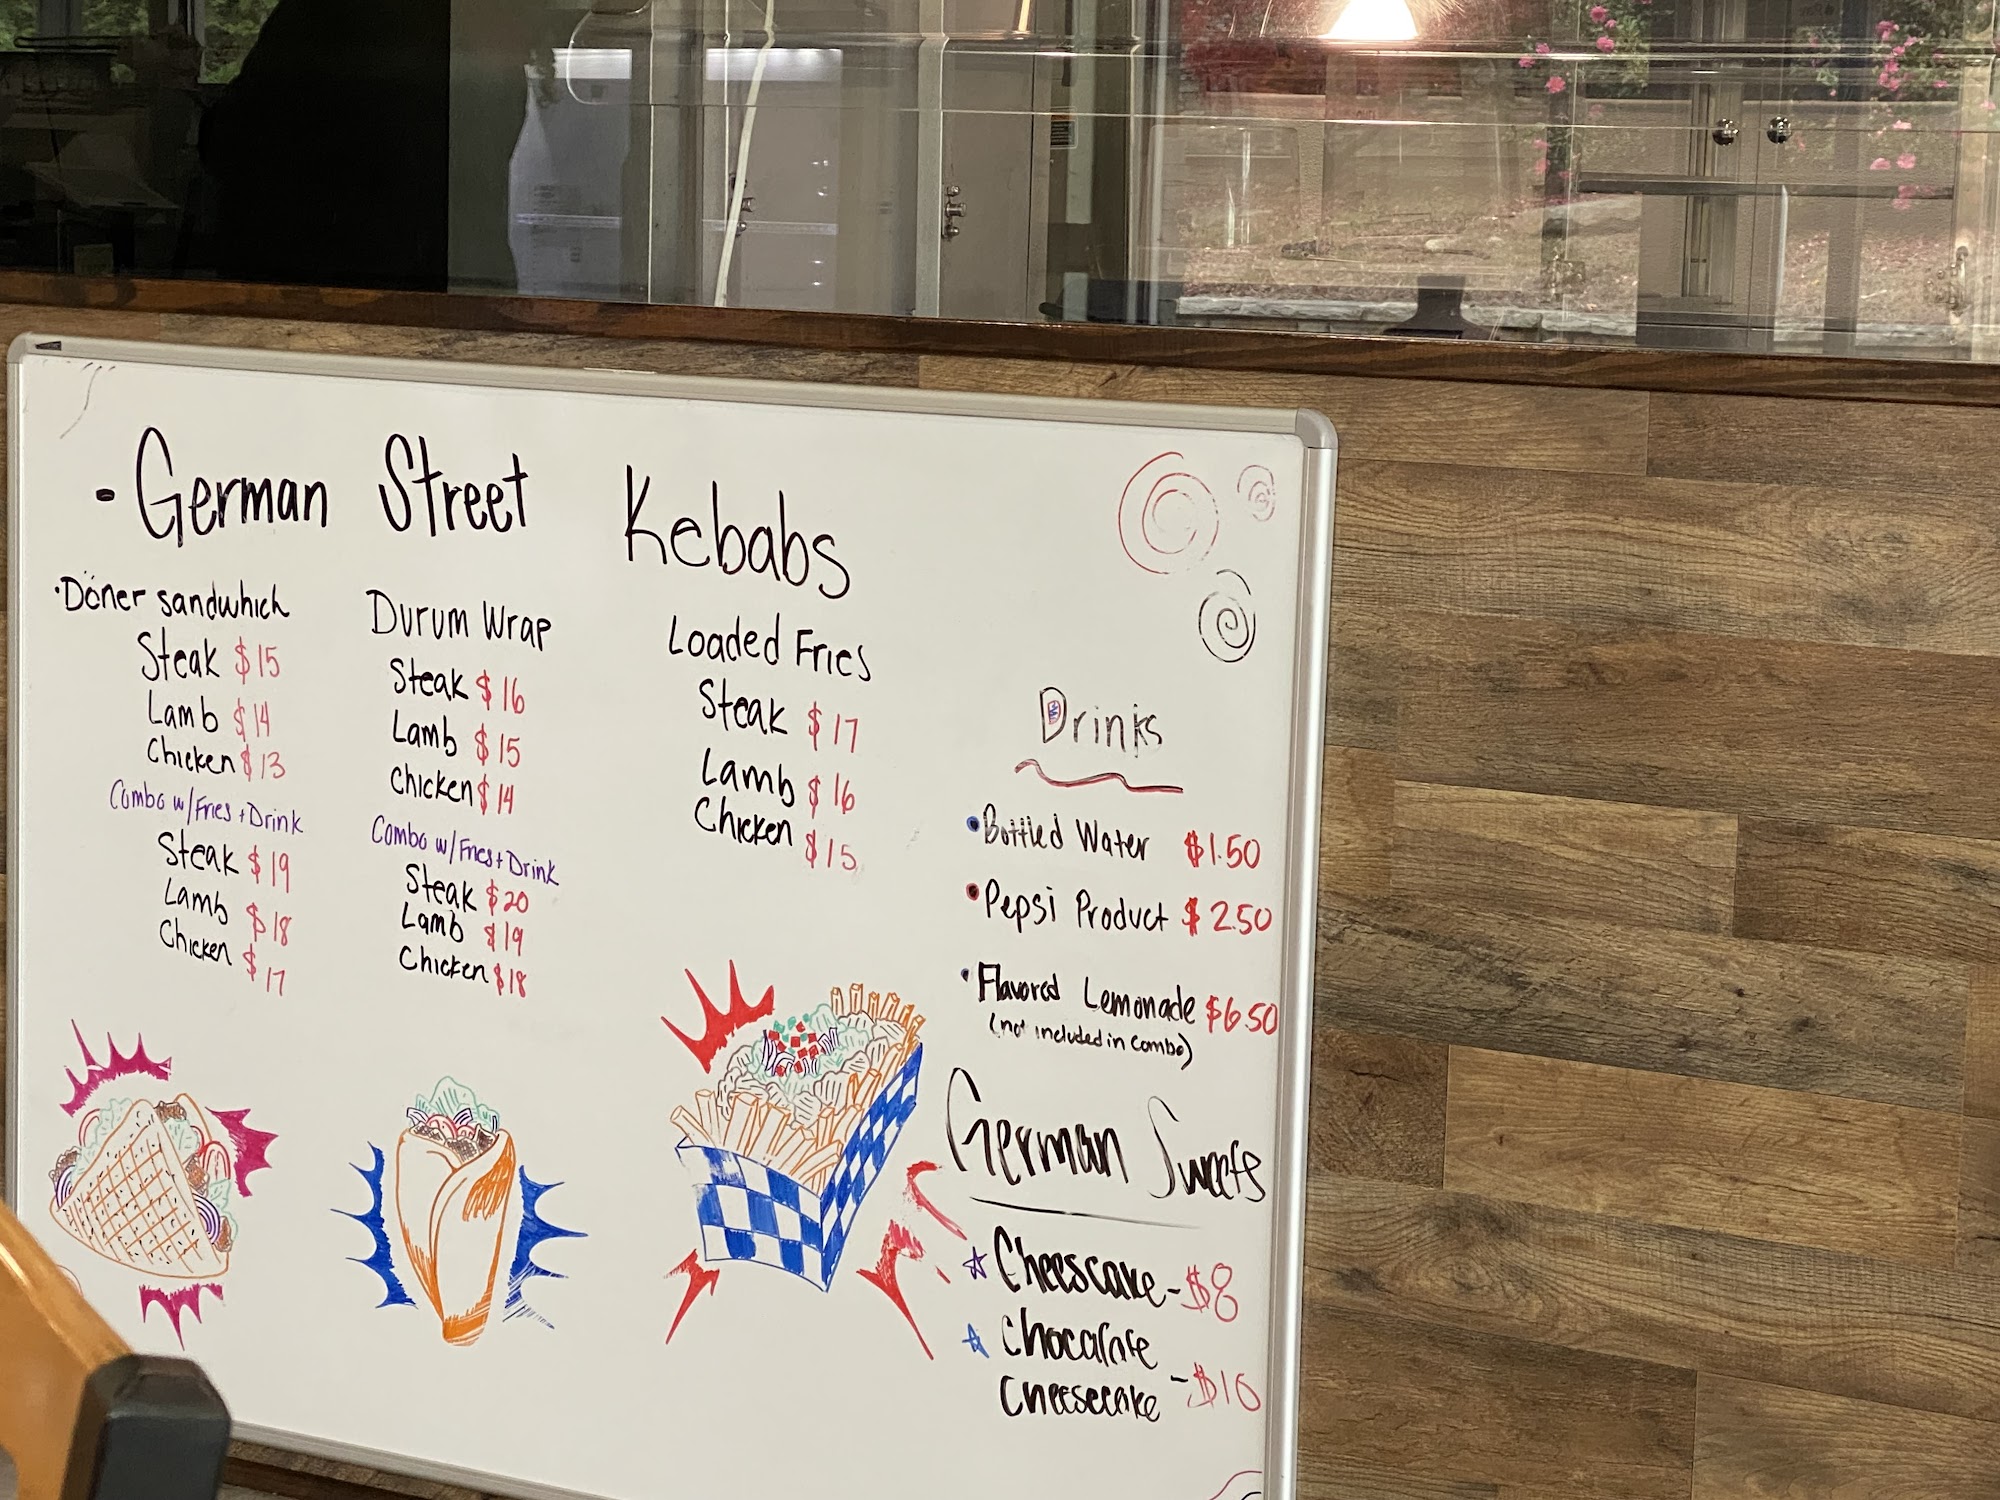 - German Street Kebabs
• Döner sandwhich
Steak $15
Lamb $14
Chicken $13
Combo w/Fries + Drink
Steak $19
Lamb $18
Chicken $17
Durum Wrap
Steak $16
Lamb $15
Chicken $14
Combo w/Fries + Drink
Steak $20
Lamb $19
Chicken $18
Loaded Fries
Steak $17
Lamb $16
Chicken $15
Drinks
• Bottled Water $1.50
• Pepsi Product $2.50
• Flavored Lemonade $6.50
(not included in combo)
German Sweets
☆ Cheescake - $8
☆ Chocalate
Cheesecake - $10